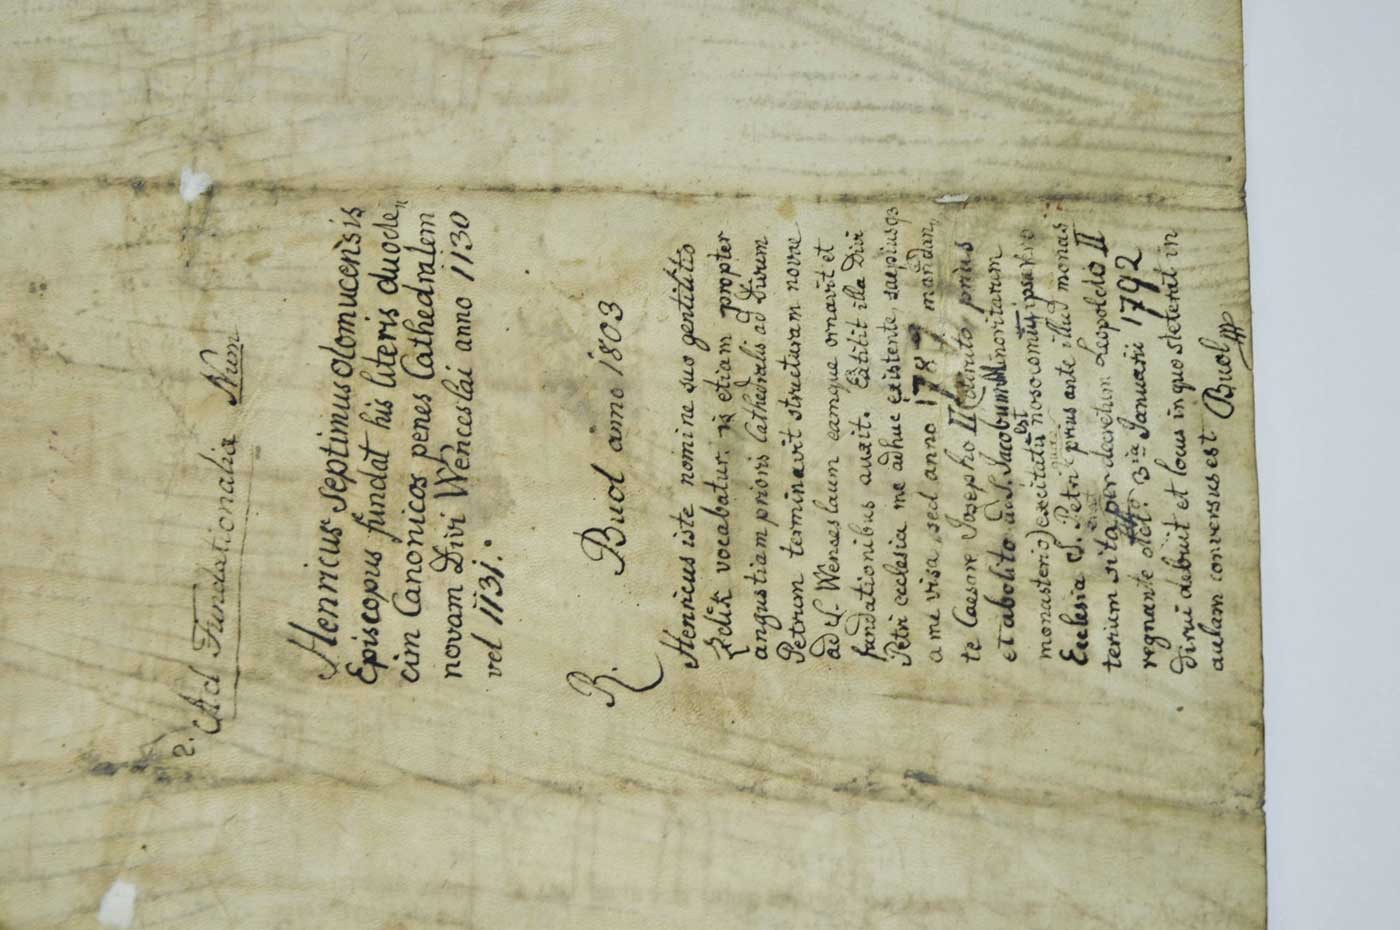 2. Ad Fundationalia Num
Henricus septimus olomucensis
Episcopus fundat his literis duode„
cim Canonicos penes Cathedralem
novam Divi Wenceslai anno 1130
vel 1131.
R. Buol anno 1803
Henricus iste nomine suo gentilitio
Zdik vocabatur: is etiam propter
angustiam prioris Cathedralis ad Divum
Petrum terminavit structuram novae
ad S. Wenseslaum eamque ornavit et
fundationibus auxit. Extitit illa Divi
Petri ecclesia me adhuc existente, saepiusqs
a me visa, sed anno 1787 mandan„
te Caesare Josepho II prius
et abolito ad S. Jacobum Minoritarum
monasterio) excitatis nosocomiis
est
Ecclesia S. Petri prius ante illud monas
terium sita per decretum Leopoldo II
regnante 3tia Januarii 1792
dirui debuit et locus in quo steterat in
aulam conversus est Buol